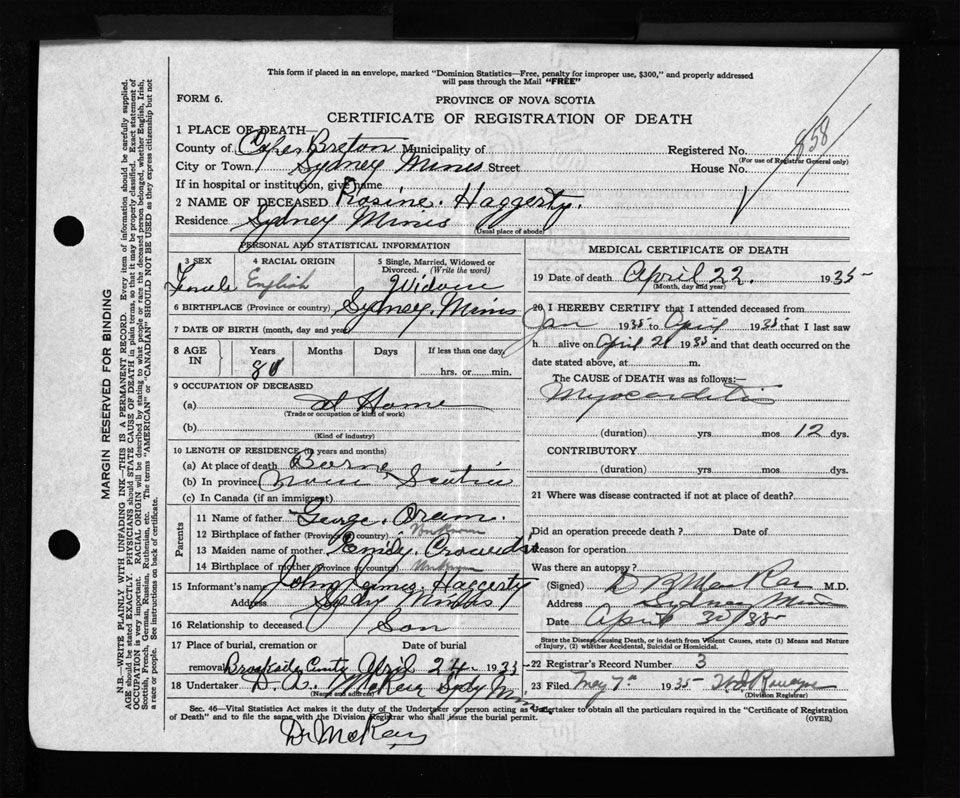 This form if placed in an envelope, marked "Dominion Statistics—Free, penalty for improper use, $300," and properly addressed
will pass through the Mail "FREE"
FORM 6.
PROVINCE OF NOVA SCOTIA
CERTIFICATE OF REGISTRATION OF DEATH
1 PLACE OF DEATH—
County of Cape Breton Municipality of Registered No. 858
(For use of Registrar General only)
City or Town Sydney Mines Street House No.
If in hospital or institution, give name
2 NAME OF DECEASED Rosine Haggerty.
Residence Sydney Mines
(Usual place of abode)
PERSONAL AND STATISTICAL INFORMATION
3 SEX
Female
4 RACIAL ORIGIN
English
5 Single, Married, Widowed or
Divorced. (Write the word)
Widow
6 BIRTHPLACE (Province or country) Sydney Mines
7 DATE OF BIRTH (month, day and year)
8 AGE IN
Years Months Days If less than one day,
hrs. or min.
9 OCCUPATION OF DECEASED
(a) At Home
(Trade or occupation or kind of work)
(b)
(Kind of industry)
10 LENGTH OF RESIDENCE (in years and months)
(a) At place of death Borne
(b) In province Nova Scotia
(c) In Canada (if an immigrant)
Parents
11 Name of father George Oram
12 Birthplace of father (Province or country) Unknown
13 Maiden name of mother Emily
14 Birthplace of mother (Province or country) Unknown
15 Informant's name John James Haggerty
Address Sydney Mines
16 Relationship to deceased Son
17 Place of burial, cremation or Date of burial
removal Brookside Cemty April 24 1935
18 Undertaker D. A. Sydy Mines
(Name and address)
MEDICAL CERTIFICATE OF DEATH
19 Date of death April 22. 1935
(Month, day and year)
20 I HEREBY CERTIFY that I attended deceased from
Jan 1935 to April 1935 that I last saw
h alive on April 21 1935 and that death occurred on the
date stated above, at m.
The CAUSE of DEATH was as follows:—
Myocarditis
(duration) yrs mos 12 dys.
CONTRIBUTORY
(duration) yrs. mos. dys.
21 Where was disease contracted if not at place of death?
Did an operation precede death? Date of
Reason for operation
Was there an autopsy?
(Signed) D B MacKay M.D.
Address Sydney Mines
Date April 30/35
State the Disease causing Death, or in death from Violent Causes, state (1) Means and Nature
of Injury, (2) whether Accidental, Suicidal or Homicidal.
22 Registrar's Record Number 3
23 Filed May 7th 1935
(Division Registrar)
Sec. 46—Vital Statistics Act makes it the duty of the Undertaker or person acting as Undertaker to obtain all the particulars required in the "Certificate of Registration
of Death" and to file the same with the Division Registrar who shall issue the burial permit.
(OVER)
Dr McKay
MARGIN RESERVED FOR BINDING
N.B.—WRITE PLAINLY WITH UNFADING INK—THIS IS A PERMANENT RECORD. Every item of information should be carefully supplied.
AGE should be stated EXACTLY. PHYSICIANS should STATE CAUSE OF DEATH in plain terms, so that it may be properly classified. Exact statement of
OCCUPATION is very important. RACIAL ORIGIN will be described by stating to what people or race the deceased person belonged, whether English, Irish,
Scottish, French, German, Russian, Ruthenian, etc. The terms "AMERICAN" or "CANADIAN" SHOULD NOT BE USED as they express citizenship but not
a race or people. See instructions on back of certificate.